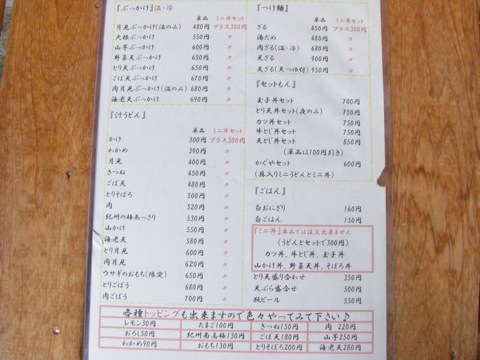 『ぶっかけ』温・冷
単品 ミニ丼セット
月見ぶっかけ(温のみ) 480円 プラス300円
大根ぶっかけ 550円 〃
山芋ぶっかけ 600円 〃
野菜天ぶっかけ 650円 〃
とり天ぶっかけ 650円 〃
ごぼ天ぶっかけ 670円 〃
肉月見ぶっかけ(温のみ) 680円 〃
海老天ぶっかけ 690円 〃
『汁うどん』
単品 ミニ丼セット
かけ 300円 プラス300円
わかめ 390円 〃
月見 400円 〃
きつね 450円 〃
ごぼ天 480円 〃
とりそぼろ 500円 〃
肉 520円 〃
紀州の梅あっさり 530円 〃
山かけ 550円 〃
海老天 580円 〃
とり月見 600円 〃
肉月見 620円 〃
ウサギのおもち(限定) 650円 〃
とりごぼう 680円 〃
肉ごぼう 700円 〃
『つけ麺』
単品 ミニ丼セット
ざる 450円 プラス300円
湯だめ 480円 〃
肉ざる(温・冷) 680円 〃
天ざる 900円 〃
天ざる(天つゆ付) 950円 〃
『セットもん』
玉子丼セット 700円
とり天丼セット(夜のみ) 700円
カツ丼セット 750円
牛とじ丼セット 750円
天とじ丼セット 850円
(単品は100円引き)
かぐやセット 600円
(具入りミニうどんとミニ丼)
『ごはん』
白おにぎり 160円
白ごはん 150円
『ミニ丼』単品では注文出来ません
(うどんとセットで300円)
カツ丼、牛とじ丼、玉子丼
山かけ丼、野菜天丼、そぼろ丼
とり天盛り合わせ 350円
天ぷら盛り合せ 500円
瓶ビール 550円
各種トッピングも出来ますので色々やってみて下さい♪
レモン30円 たまご100円 きつね150円 肉 220円
おろし50円 紀州南高梅130円 ごぼ天180円 山芋250円
わかめ90円 おもち130円 とりそぼろ200円 海老天280円